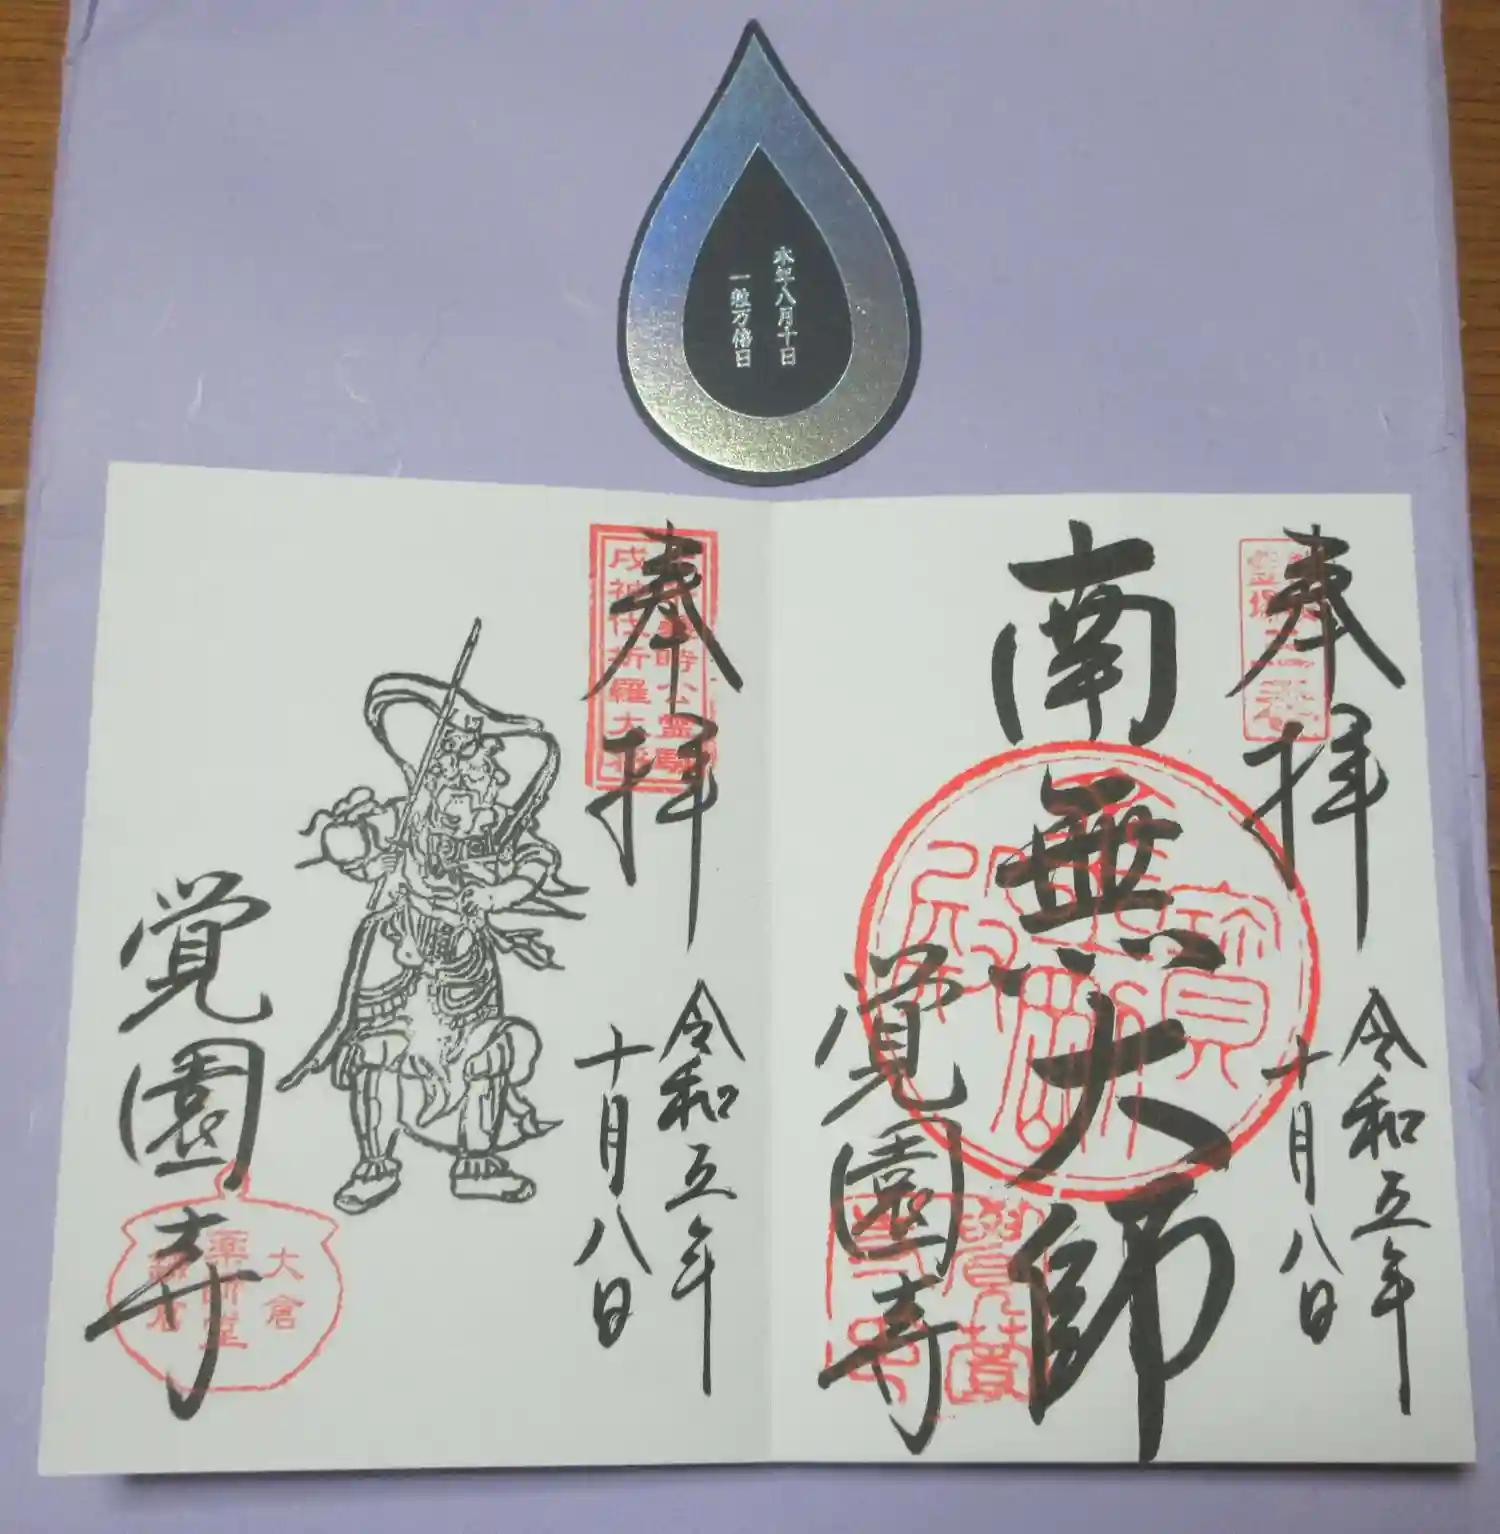 本年八月十日
一粒万倍日
奉拝
令和五年
十月八日
南無大師
覚園寺
奉拝
義時公霊験
戌神伐折羅大将
令和五年
十月八日
覚園寺
大倉
薬師堂